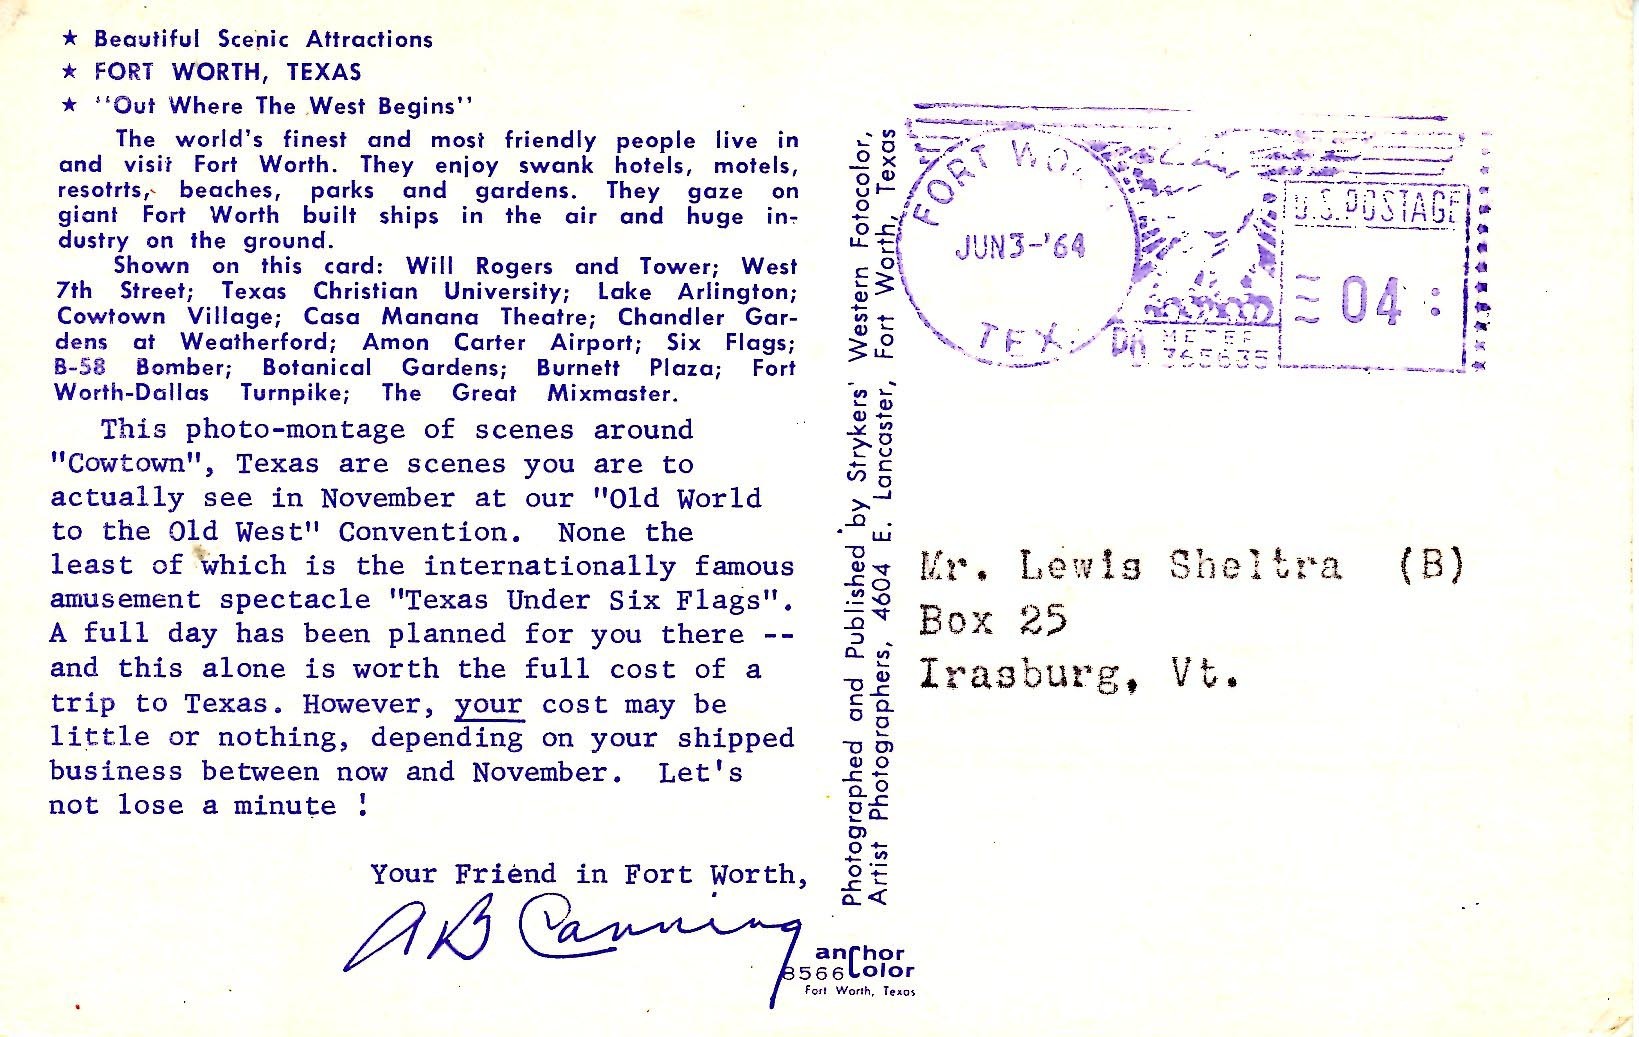 ★ Beautiful Scenic Attractions
★ FORT WORTH, TEXAS
★ "Out Where The West Begins"
The world's finest and most friendly people live in
and visit Fort Worth. They enjoy swank hotels, motels,
resotrts, beaches, parks and gardens. They gaze on
giant Fort Worth built ships in the air and huge in-
dustry on the ground.
Shown on this card: Will Rogers and Tower; West
7th Street; Texas Christian University; Lake Arlington;
Cowtown Village; Casa Manana Theatre; Chandler Gar-
dens at Weatherford; Amon Carter Airport; Six Flags;
B-58 Bomber; Botanical Gardens; Burnett Plaza; Fort
Worth-Dallas Turnpike; The Great Mixmaster.
This photo-montage of scenes around
"Cowtown", Texas are scenes you are to
actually see in November at our "Old World
to the Old West" Convention. None the
least of which is the internationally famous
amusement spectacle "Texas Under Six Flags".
A full day has been planned for you there --
and this alone is worth the full cost of a
trip to Texas. However, your cost may be
little or nothing, depending on your shipped
business between now and November. Let's
not lose a minute !
Your Friend in Fort Worth,
AB Canning
Photographed and Published by Strykers' Western Fotocolor,
Artist Photographers, 4604 E. Lancaster, Fort Worth, Texas
anchor
8566 Color
Fort Worth, Texas
FORT WO
JUN 3-'64
TEX.
U.S. POSTAGE
04
METER
Mr. Lewis Sheltra (B)
Box 25
Irasburg, Vt.